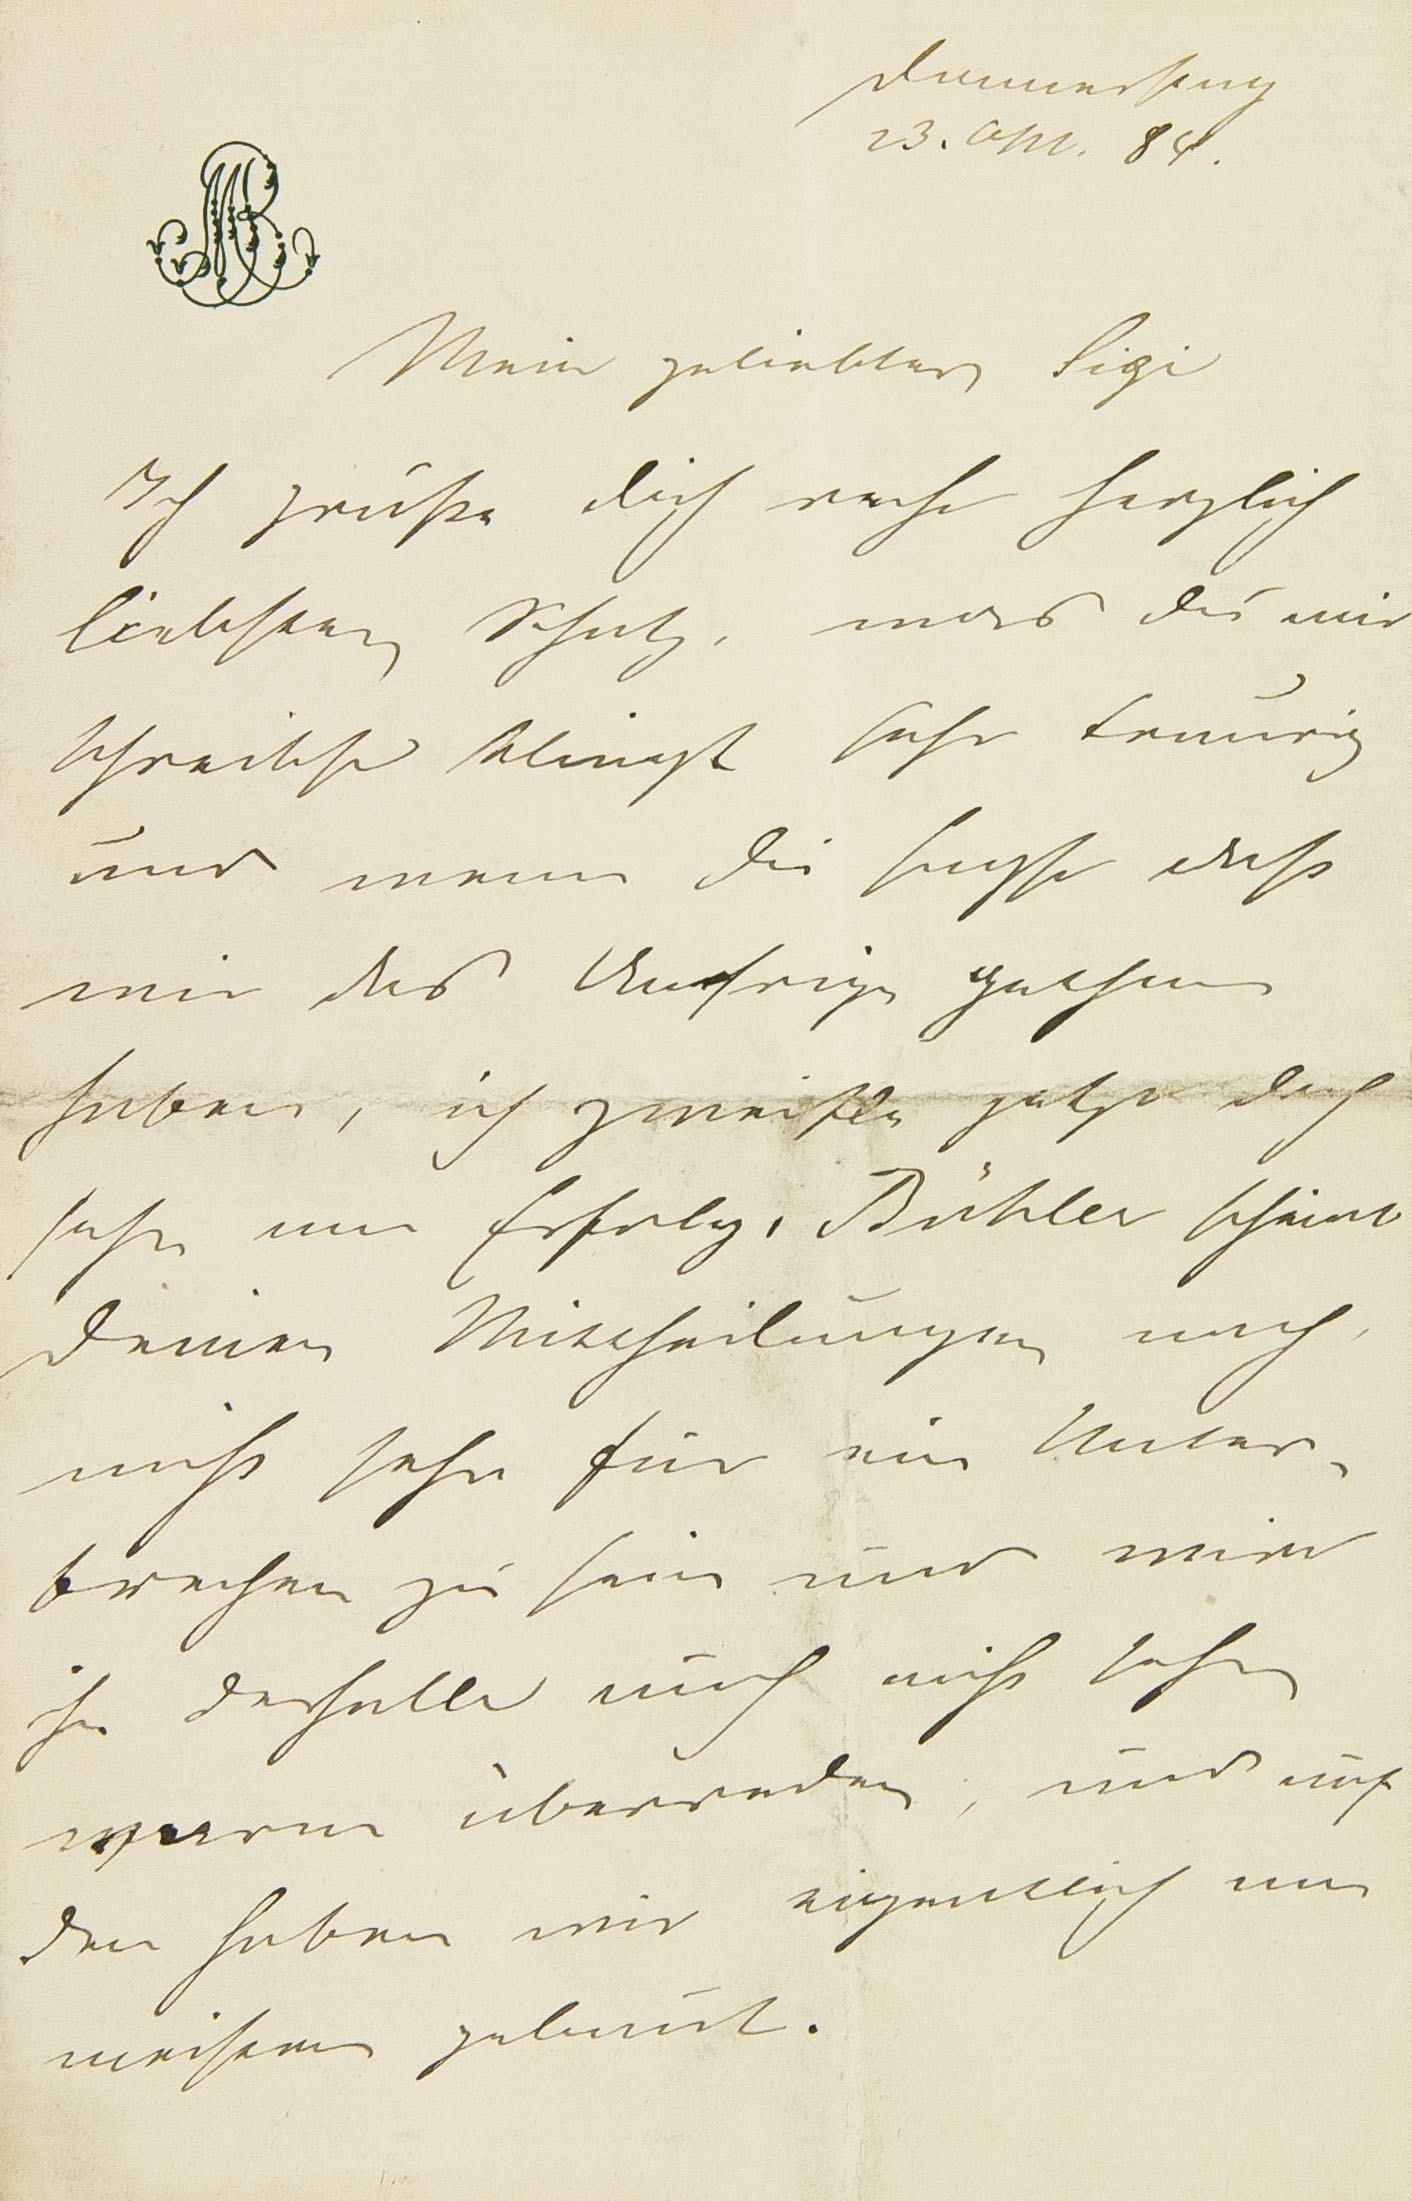 Donnerstag
23. Okt. 84.
MB
Mein geliebter Sigi
Ich grüße Dich recht herzlich
liebster Schatz, was Du mir
schreibst klingt sehr traurig
und wenn Du sagst daß
wir das Unsrige gethan
haben, ich zweifle jetzt doch
sehr am Erfolg, Bühler scheint
Deinen Mittheilungen nach,
nicht sehr für ein Unter-
brechen zu sein und wird
ihr deshalb auch nicht sehr
warm überreden, und auf
den haben wir eigentlich am
meisten gebaut.